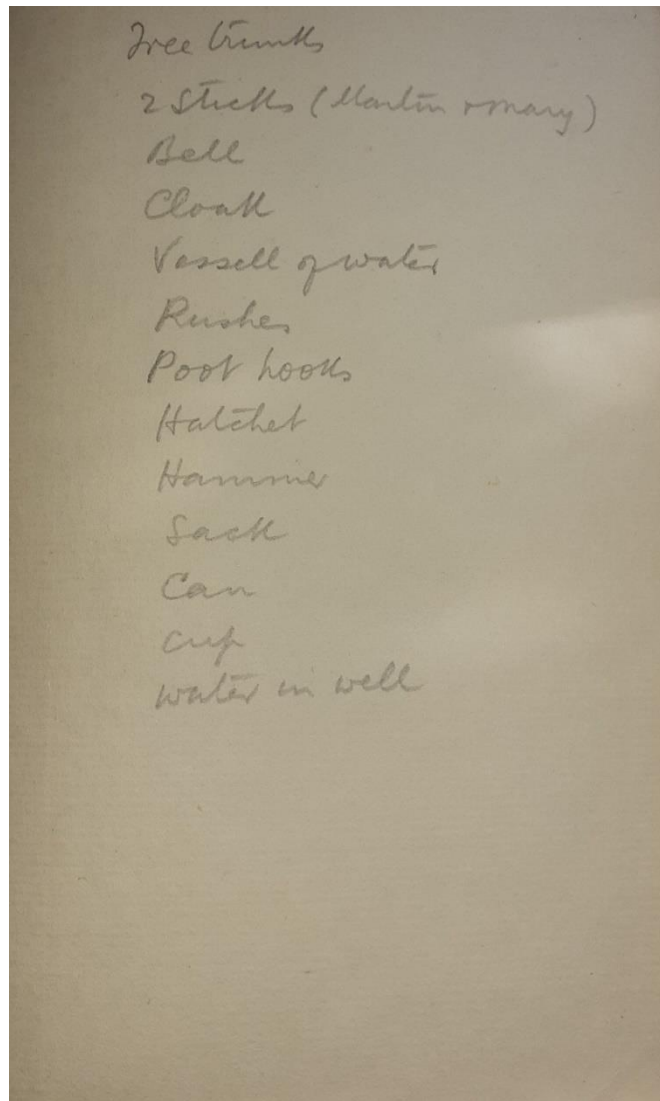 Tree trunks
2 Sticks (Martin + Mary)
Bell
Cloak
Vessell of water
Rushes
Poot hooks
Hatchet
Hammer
Sack
Can
Cup
Water in well